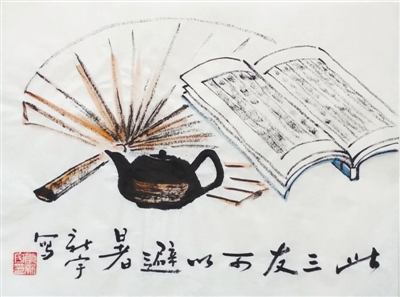 此三友可以避暑
新宇
写